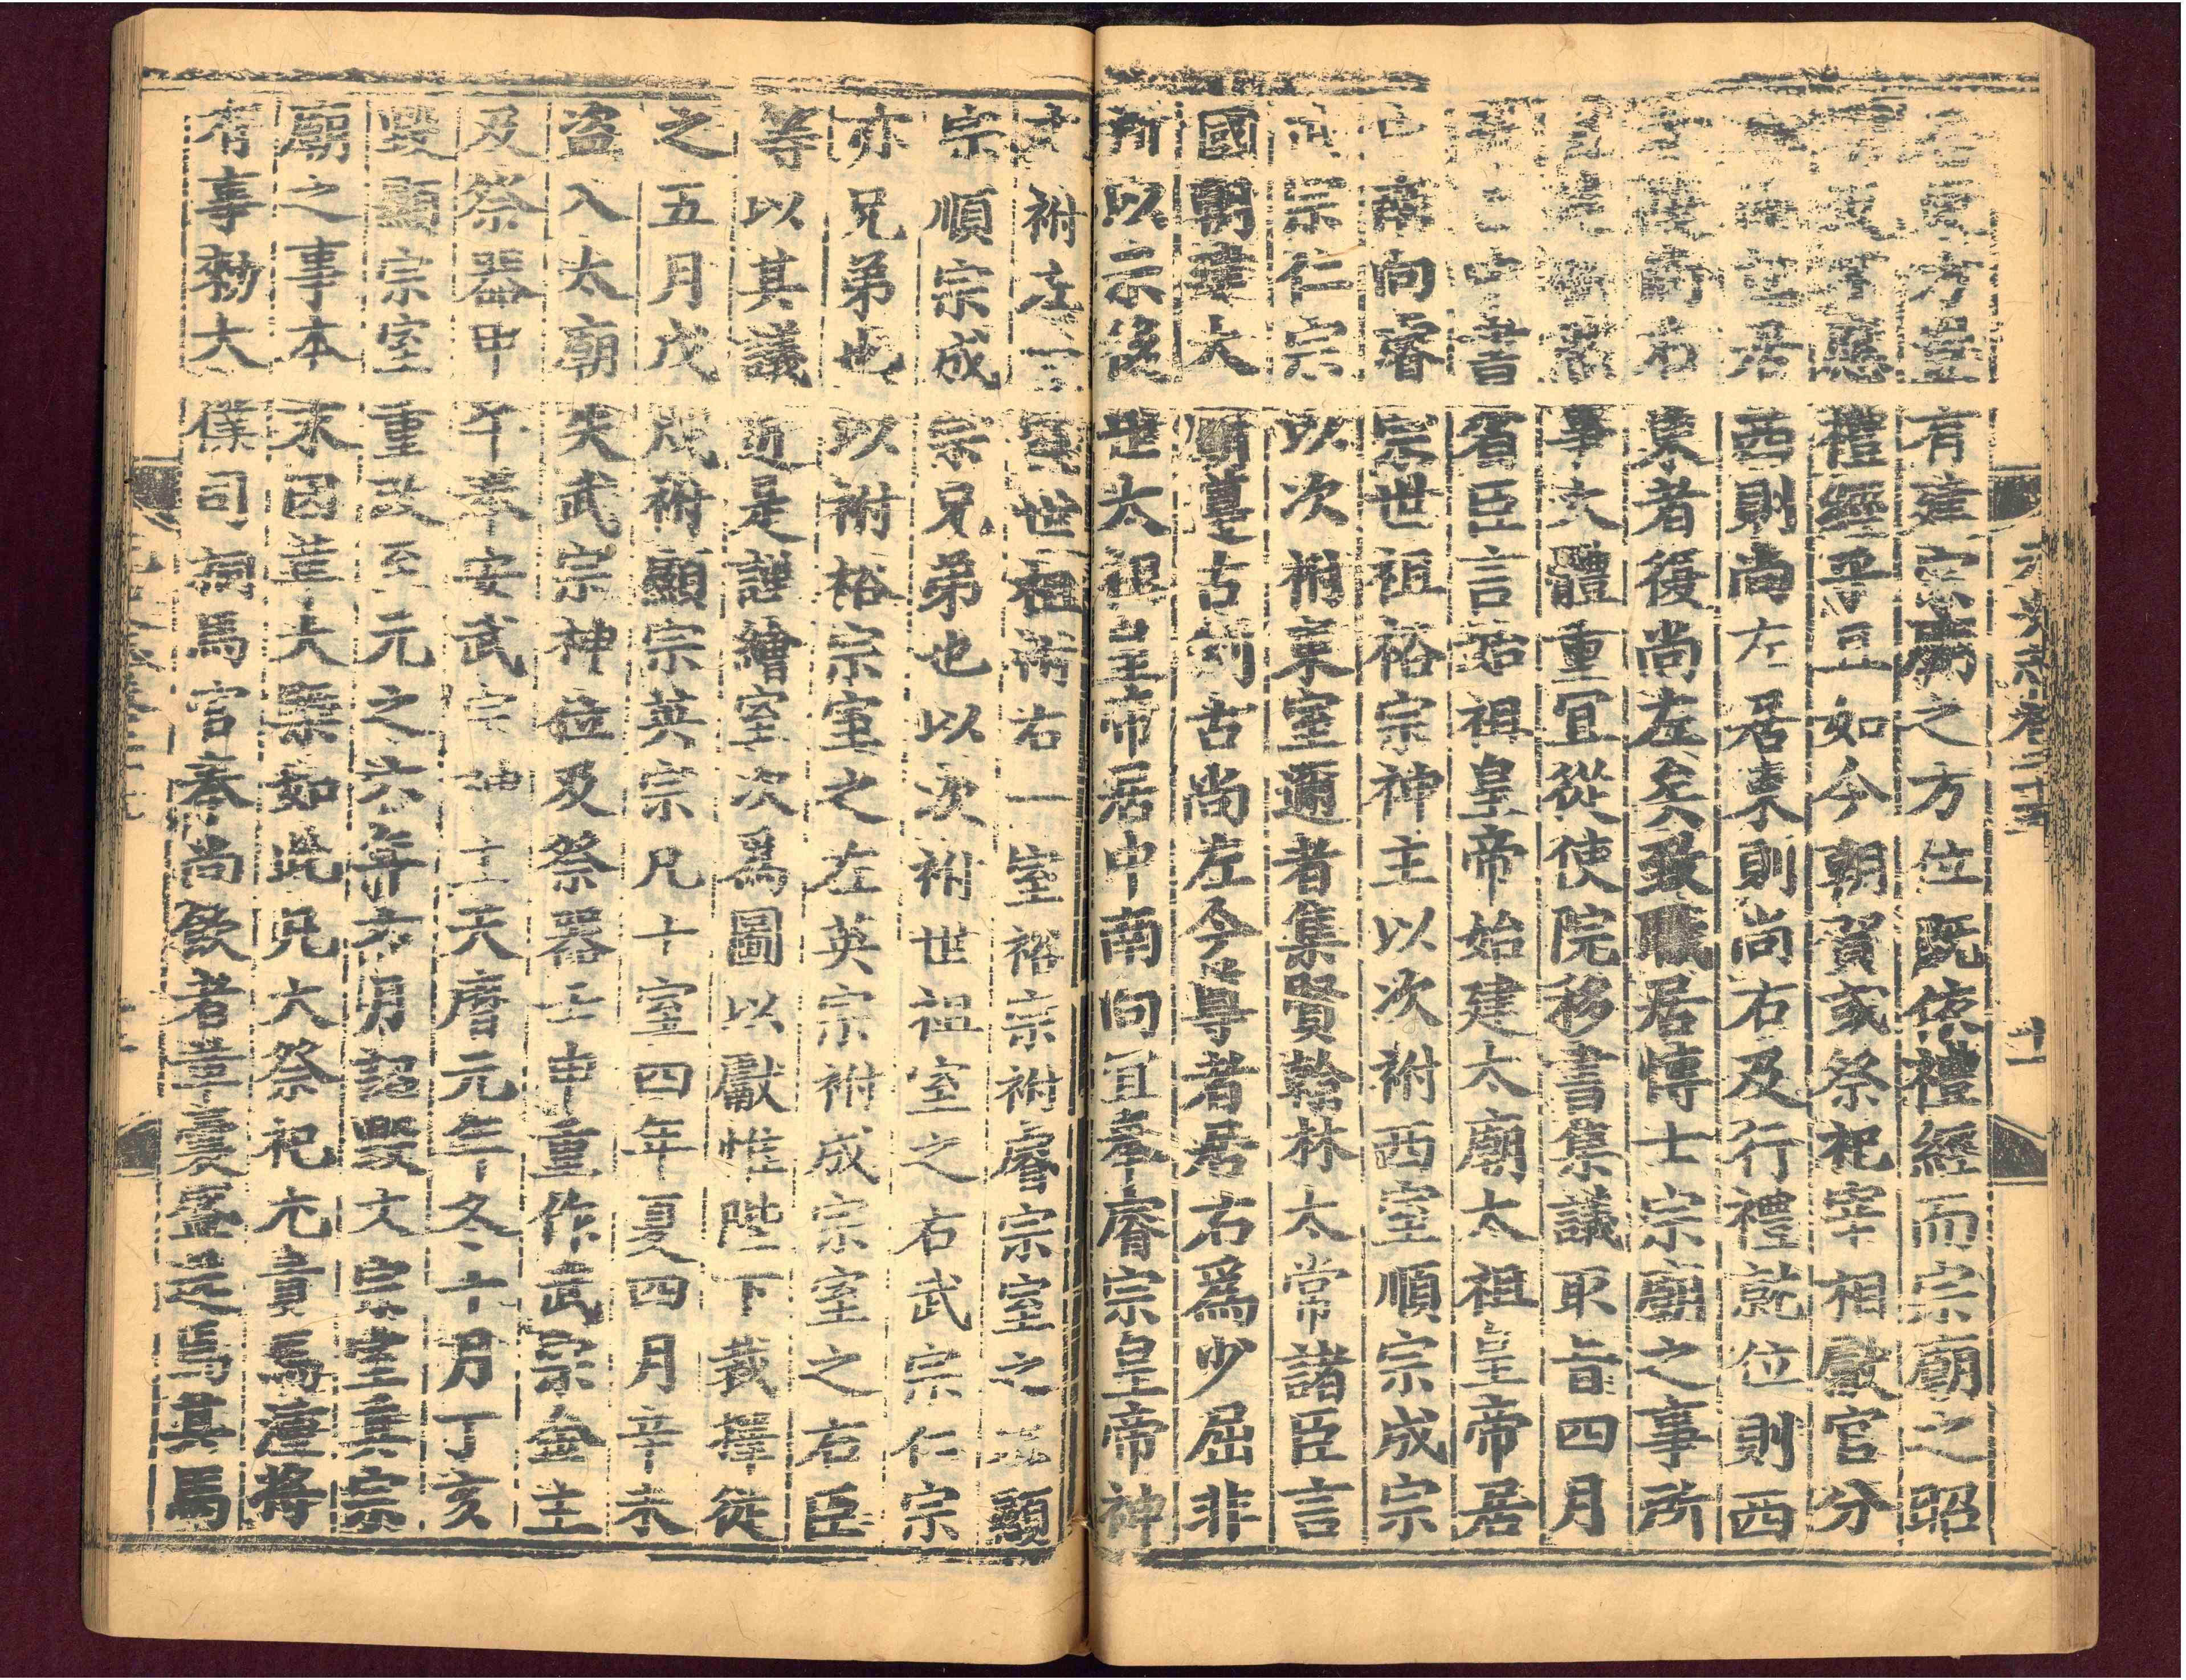 更方豈有建宗廟之方位既依禮經而宗廟之昭
穆反不應禮經乎且如今朝賀或祭祀宰相獻官分
班而立居西則尚左居東則尚右及行禮就位則西
者復尚右東者復尚左矣致職居博士宗廟之事所
宜建明然事大體重宜從使院移書集議取旨四月
辛巳中書省臣言始祖皇帝始建太廟太祖皇帝居
中南向睿宗世祖裕宗神主以次祔西室順宗成宗
武宗仁宗以次祔東室邇者集賢翰林太常諸臣言
國朝建太廟遵古制古尚左今尊者居右爲少屈非
所以示後世太祖皇帝居中南向宜奉睿宗皇帝神
主祔左一室世祖祔右一室裕宗祔睿宗室之左顯
宗順宗成宗兄弟也以次祔世祖室之右武宗仁宗
亦兄弟也以祔裕宗室之左英宗祔成宗室之右臣
等以其議近是謹繪室次爲圖以獻惟陛下裁擇從
之五月戊戌祔顯宗英宗凡十室四年夏四月辛未
盜入太廟失武宗神位及祭器壬申重作武宗金主
及祭器甲午奉安武宗神主天曆元年冬十月丁亥
毀顯宗室重改至元之六年六月詔毀文宗室其宗
廟之事本末因革大槩如此凡大祭祀尤貴馬湩將
有事勑大僕司挏馬官奉尚飲者革囊盛送焉其馬
元史志卷二十五
十一